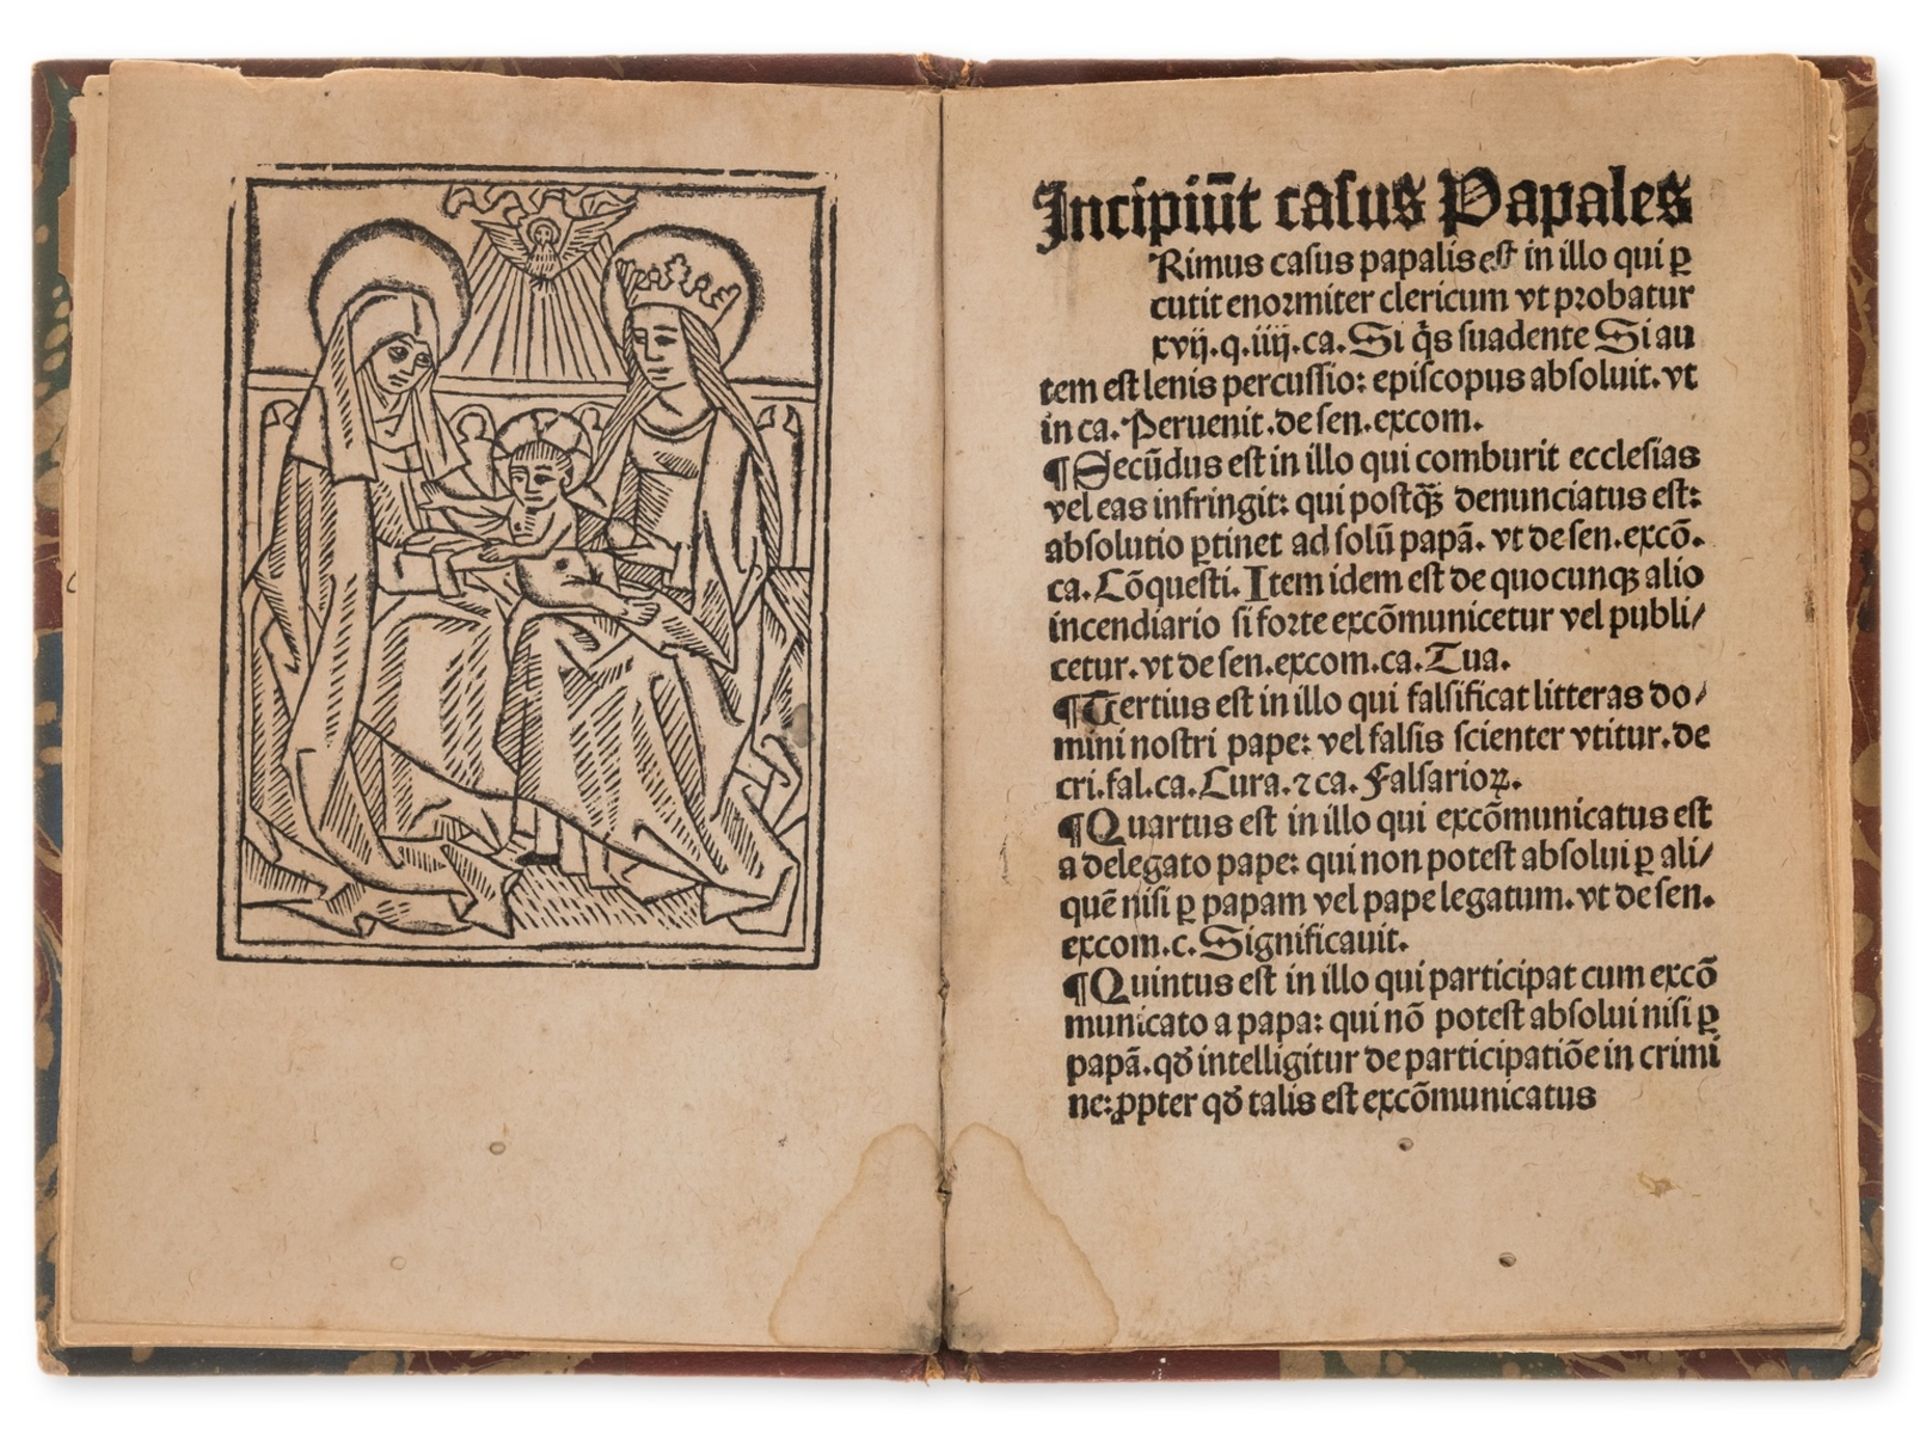 Incipiūt casus Papales
Rimus casus papalis est in illo qui ꝑ
cutit enormiter clericum vt probatur
xvij.q.iiij.ca. Si q̄s suadente Si au
tem est lenis percussio: episcopus absoluit. vt
in ca. Peruenit. de sen. excom.
¶ Secūdus est in illo qui comburit ecclesias
vel eas infringit: qui postq̄ꝫ denunciatus est:
absolutio ꝑtinet ad solū papā. vt de sen. excō.
ca. Cōquesti. Item idem est de quocunqꝫ alio
incendiario si forte excōmunicetur vel publi/
cetur. vt de sen. excom. ca. Tua.
¶ Tertius est in illo qui falsificat litteras do/
mini nostri pape: vel falsis scienter vtitur. de
cri. fal. ca. Cura. ⁊ ca. Falsarioꝝ.
¶ Quartus est in illo qui excōmunicatus est
a delegato pape: qui non potest absolui ꝑ ali/
quē nisi ꝑ papam vel pape legatum. vt de sen.
excom. c. Significauit.
¶ Quintus est in illo qui participat cum excō
municato a papa: qui nō potest absolui nisi ꝑ
papā. qđ intelligitur de participatiōe in crimi
ne: ꝓpter qđ talis est excōmunicatus